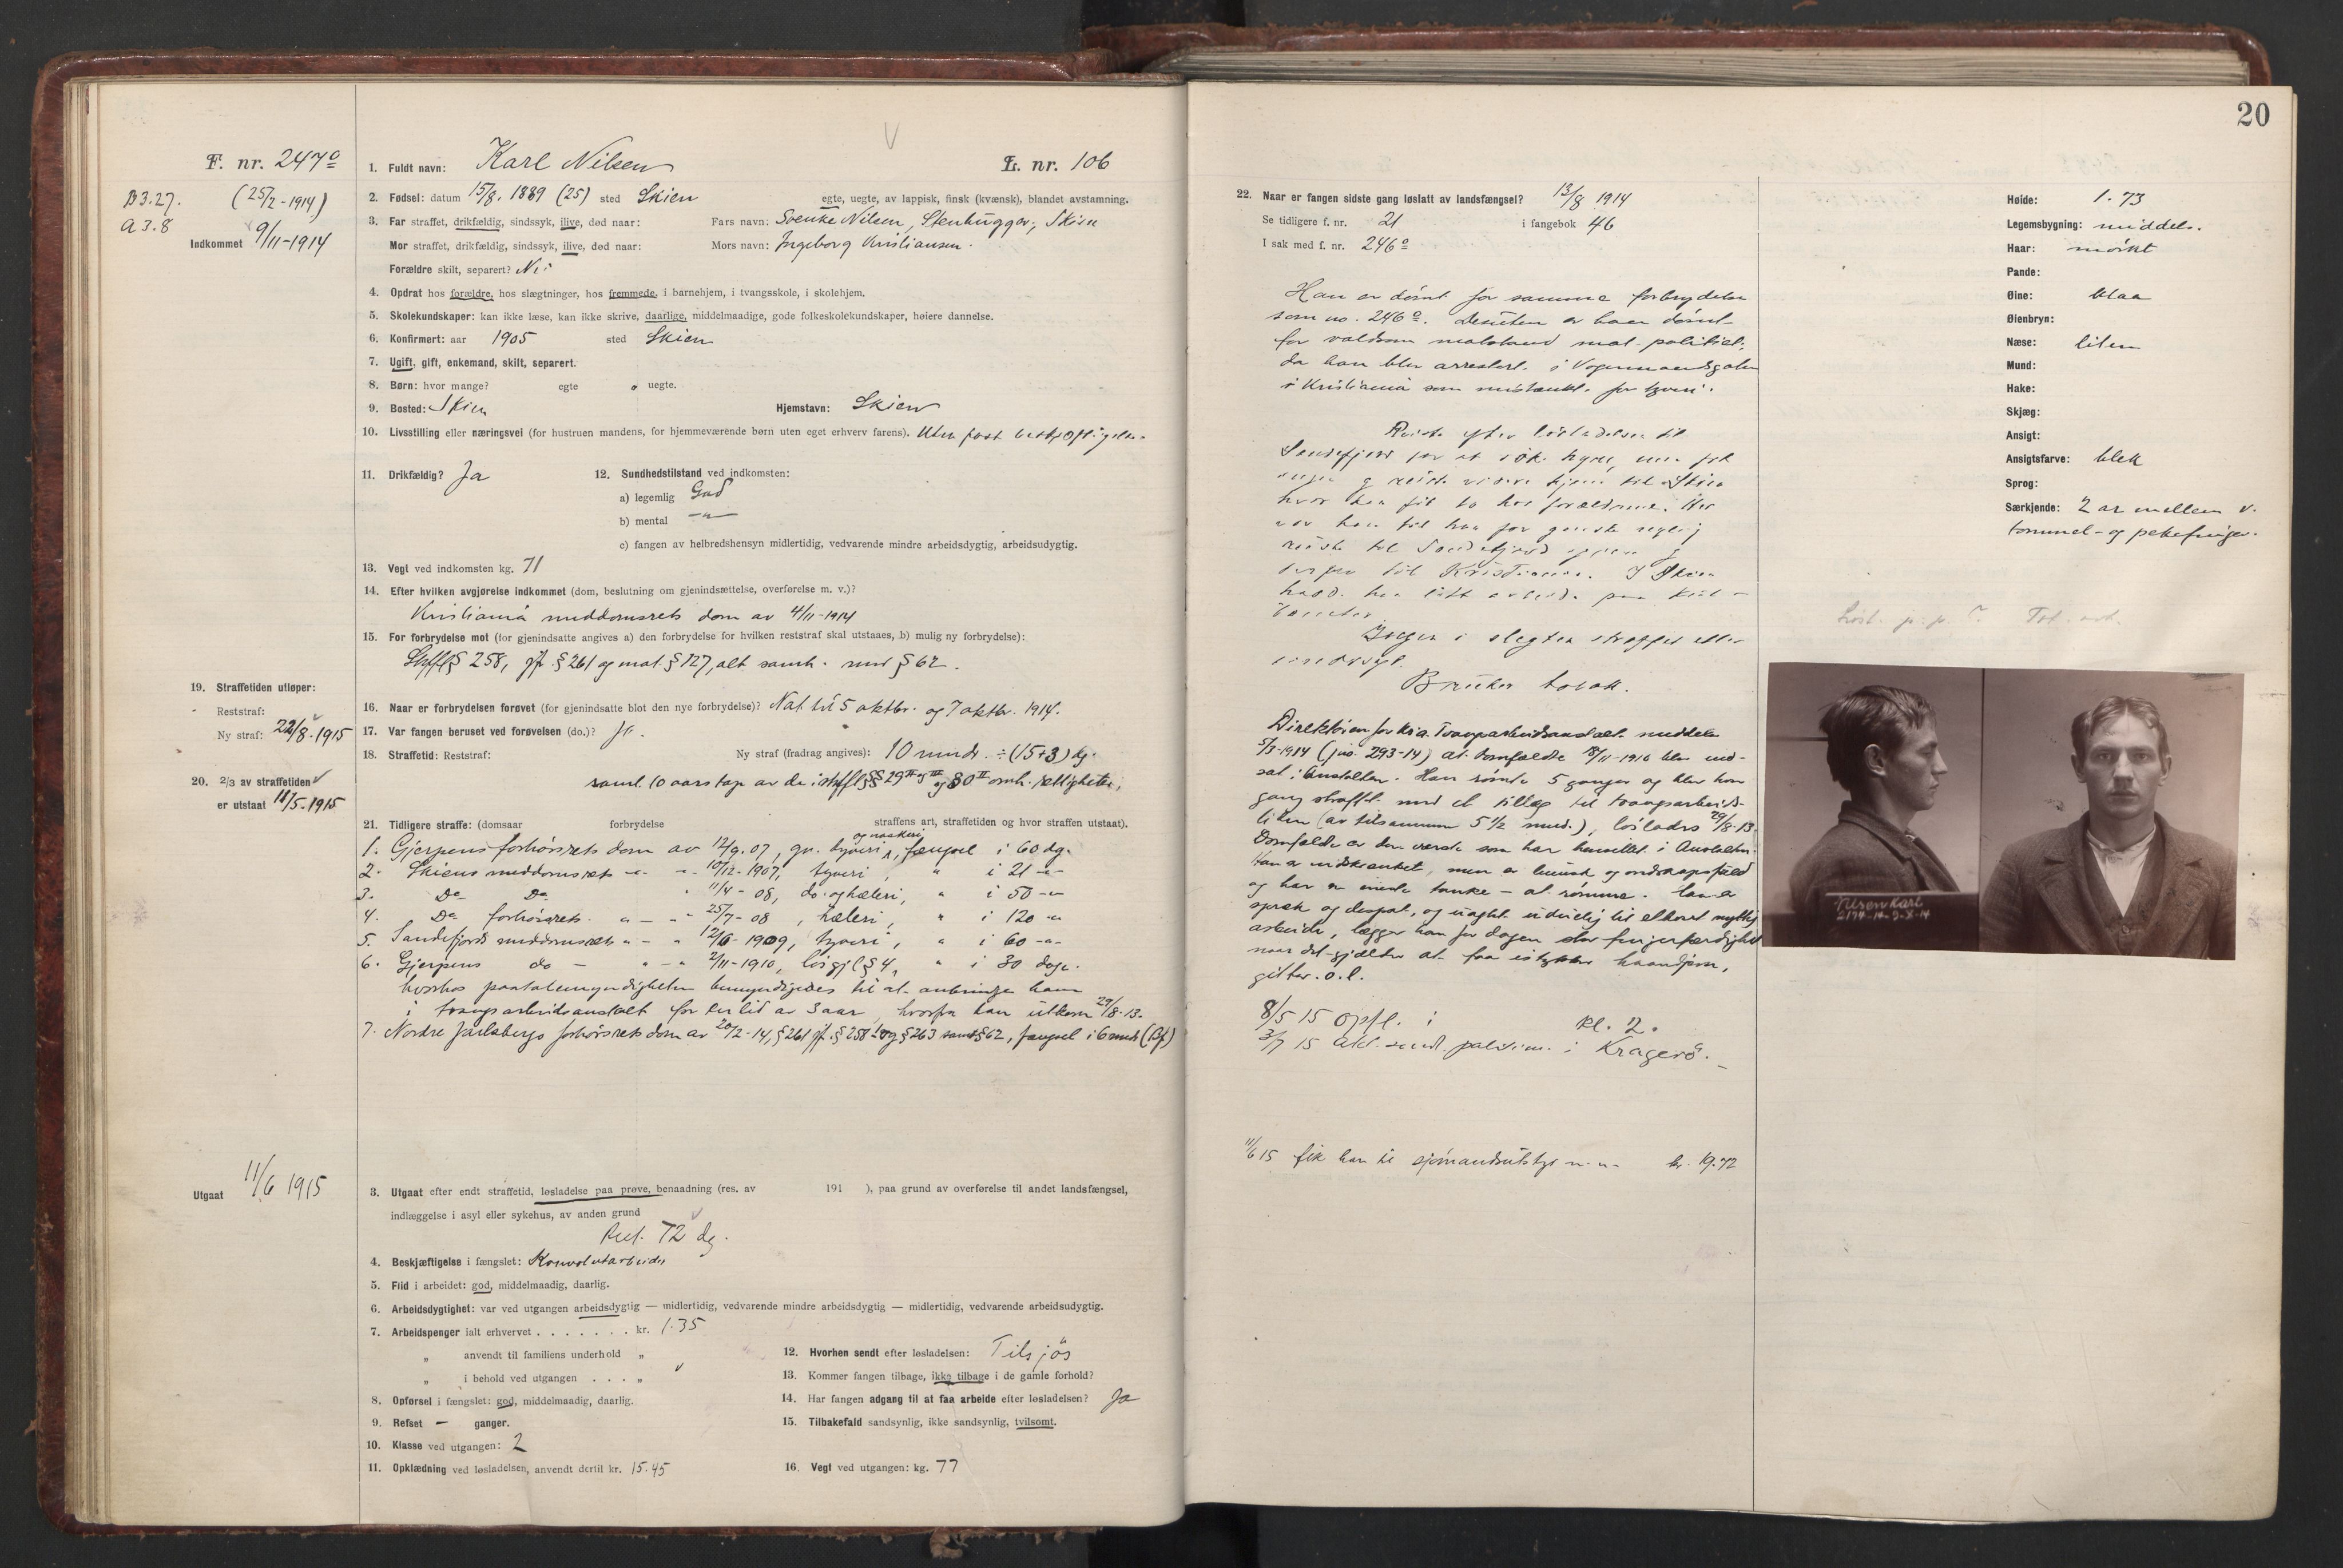 F. nr. 247a
B3.27. (25/2-1914)
A 3.8
Indkommet 9/11-1914
1. Fuldt navn: Karl Nilsen
L. nr. 106
2. Fødsel: datum 15/8. 1889 (25) sted Skien egte, uegte, av lappisk, finsk (kvænsk), blandet avstamning.
3. Far straffet, drikfældig, sindssyk, ilive, død naar: Fars navn: Svenke Nilsen, Stenhugger, Skien
Mor straffet, drikfældig, sindssyk, ilive, død naar: Mors navn: Ingeborg Kristiansen.
Forældre skilt, separert? Nei
4. Opdrat hos forældre, hos slægtninger, hos fremmede, i barnehjem, i tvangsskole, i skolehjem.
5. Skolekundskaper: kan ikke læse, kan ikke skrive, daarlige, middelmaadige, gode folkeskolekundskaper, høiere dannelse.
6. Konfirmert: aar 1905 sted Skien
7. Ugift, gift, enkemand, skilt, separert.
8. Børn: hvor mange? egte o uegte.
9. Bosted: Skien Hjemstavn: Skien
10. Livsstilling eller næringsvei (for hustruen mandens, for hjemmeværende børn uten eget erhverv farens). Uten fast beskjæftigelse.
11. Drikfældig? Ja
12. Sundhedstilstand ved indkomsten:
a) legemlig God
b) mental —"—
c) fangen av helbredshensyn midlertidig, vedvarende mindre arbeidsdygtig, arbeidsudygtig.
13. Vegt ved indkomsten kg. 71
14. Efter hvilken avgjørelse indkommet (dom, beslutning om gjenindsættelse, overførelse m. v.)?
Kristiania meddomsrets dom av 4/11-1914
15. For forbrydelse mot (for gjenindsatte angives a) den forbrydelse for hvilken reststraf skal utstaaes, b) mulig ny forbrydelse):
Strffl § 258, jf. § 261 og mot § 127, alt samh. med § 62.
19. Straffetiden utløper:
Reststraf:
Ny straf: 22/8-1915
16. Naar er forbrydelsen forøvet (for gjenindsatte blot den nye forbrydelse)? Nat til 5 oktbr. og 7 oktbr. 1914.
17. Var fangen beruset ved forøvelsen (do.)? Ja.
18. Straffetid: Reststraf: Ny straf (fradrag angives): 10 mndr. ÷ (15+3) dg.
20. 2/3 av straffetiden
er utstaat 11/5-1915
samt 10 aars tap av de i strffl §§ 29 II og III og 30 II omh. rettigheter,
21. Tidligere straffe: (domsaar forbrydelse straffens art, straffetiden og hvor straffen utstaat).
1. Gjerpens forhørsrets dom av 12/9.07, gr. tyveri og naskeri, fængsel i 60 dg.
2. Skiens meddomsrets -"- -"- 10/12-1907, tyveri, " i 21 -"-
3. Do Do " 11/4-08, do. og hæleri, " i 50 -"-
4. Do forhørsrets " — " 25/7-08, hæleri, " i 120 -"-
5. Sandefjords meddomsrets " — " 12/6-1909, tyveri, " i 60 -"-
6. Gjerpens do — " — " 2/11-1910, løsgjl § 4, " i 30 dage.
hvorhos paatalemyndigheten bemyndigedes til at anbringe ham
i tvangsarbeidsanstalt for en tid av 3 aar, hvorfra han utkom 29/8-13.
7. Nordre Jarlsbergs forhørsrets dom av 20/2-14, § 261 jf. § 258 og § 263 samt § 62, fængsel i 6 mndr (Bf)
Utgaat 11/6 1915
3. Utgaat efter endt straffetid, løsladelse paa prøve, benaadning (res. av 191 ), paa grund av overførelse til andet landsfængsel,
indlæggelse i asyl eller sykehus, av anden grund
Rest. 72 dg.
4. Beskjæftigelse i fængslet: Konvolutarbeider
5. Flid i arbeidet: god, middelmaadig, daarlig.
6. Arbeidsdygtighet: var ved utgangen arbeidsdygtig — midlertidig, vedvarende mindre arbeidsdygtig — midlertidig, vedvarende arbeidsudygtig.
7. Arbeidspenger ialt erhvervet . . . . . . . kr. 1.35
" anvendt til familiens underhold "
" i behold ved utgangen . . . . "
8. Opførsel i fængslet: god, middelmaadig, daarlig.
9. Refset — ganger.
10. Klasse ved utgangen: 2
11. Opklædning ved løsladelsen, anvendt dertil kr. 15.45
12. Hvorhen sendt efter løsladelsen: Tilsjøs
13. Kommer fangen tilbage, ikke tilbage i de gamle forhold?
14. Har fangen adgang til at faa arbeide efter løsladelsen? Ja
15. Tilbakefald sandsynlig, ikke sandsynlig, tvilsomt.
16. Vegt ved utgangen: kg. 77
20
22. Naar er fangen sidste gang løslatt av landsfængsel? 13/8 1914
Se tidligere f. nr. 21 i fangebok 46
I sak med f. nr. 246a
Han er dømt for samme forbrydelse
som no. 246a. Desuten er han dømt
for voldsom motstand mot politiet,
da han blev arrestert i Vognmandsgaten
i Kristiania som mistænkt for tyveri.
Reiste efter løsladelsen til
Sandefjord for at søke hyre, men fik
ingen og reiste videre hjem til Skien
hvor han fik bo hos forældrene. Her
reiste til Sandefjord igjen og
derfra til Kristiania. I Skien
hadde han litt arbeide paa
Ingen i slegten straffet eller
sindssyk.
Bruker tobak.
Direktøren for Kr.a Tvangsarbeidsanstalt meddeler
5/3-1914 (jno. 293-14) at domfældte 18/11-1910 blev ind-
sat i Anstalten. Han rømte 5 ganger og blev hver
gang straffet med et tillæg til tvangsarbeids-
tiden (av tilsammen 5 1/2 mnd.), løslades 29/8-13.
Domfældte er den værste som har henvillet i Anstalten.
Han er indskrænket, men er lumsk og ondskapsfuld
og har en eneste tanke – at rømme. Han er
spræk og despat, og uagtet uduelig til ethvert nyttig
arbeide, lægger han for dagen stor fingerfærdighet
naar det gjælder at faa istykker haandjern,
gitter o. l.
8/5 15 opfl. i kl. 2.
3/7 15 politim. i Kragerø.
11/6 15 fik han til sjømandsutstyr m. m. kr. 19.72
Høide: 1.73
Legemsbygning: middels.
Haar: mørkt
Pande:
Øine: blaa
Øienbryn:
Næse: liten
Mund:
Hake:
Skjæg:
Ansigt:
Ansigtsfarve: blek
Sprog:
Særkjende: 2 ar mellem v.
tommel- og pekefinger.
Nilsen Karl
2174-14-9-X-14